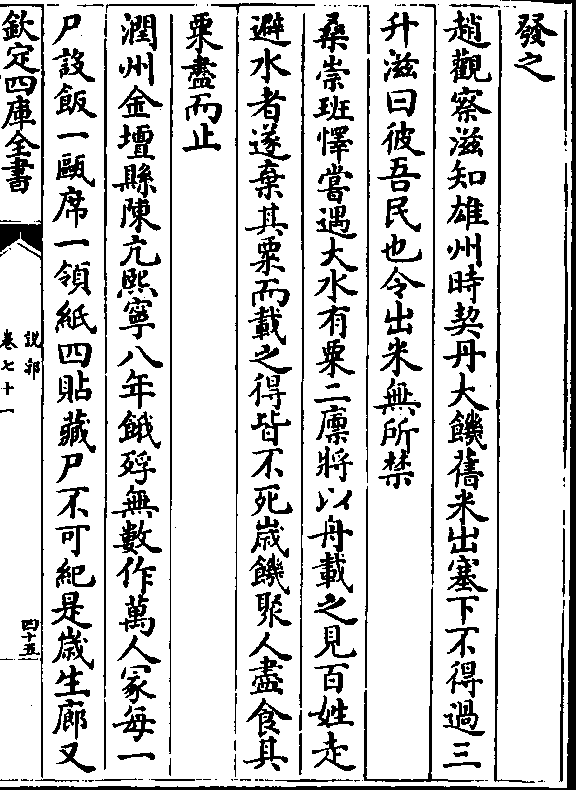 發之
趙觀察滋知雄州時契丹大饑舊米出塞下不得過三
升滋曰彼吾民也令出米無所禁
桑崇班懌嘗遇大水有粟二廩將以舟載之見百姓走
避水者遂棄其粟而載之得皆不死歳饑聚人盡食其
粟盡而止
潤州金壇縣陳亢熙寧八年餓殍無數作萬人冢每一
尸設飯一甌席一領紙四貼藏尸不可紀是歳生廊又
欽定四庫全書
說郛
卷七十一
四十五